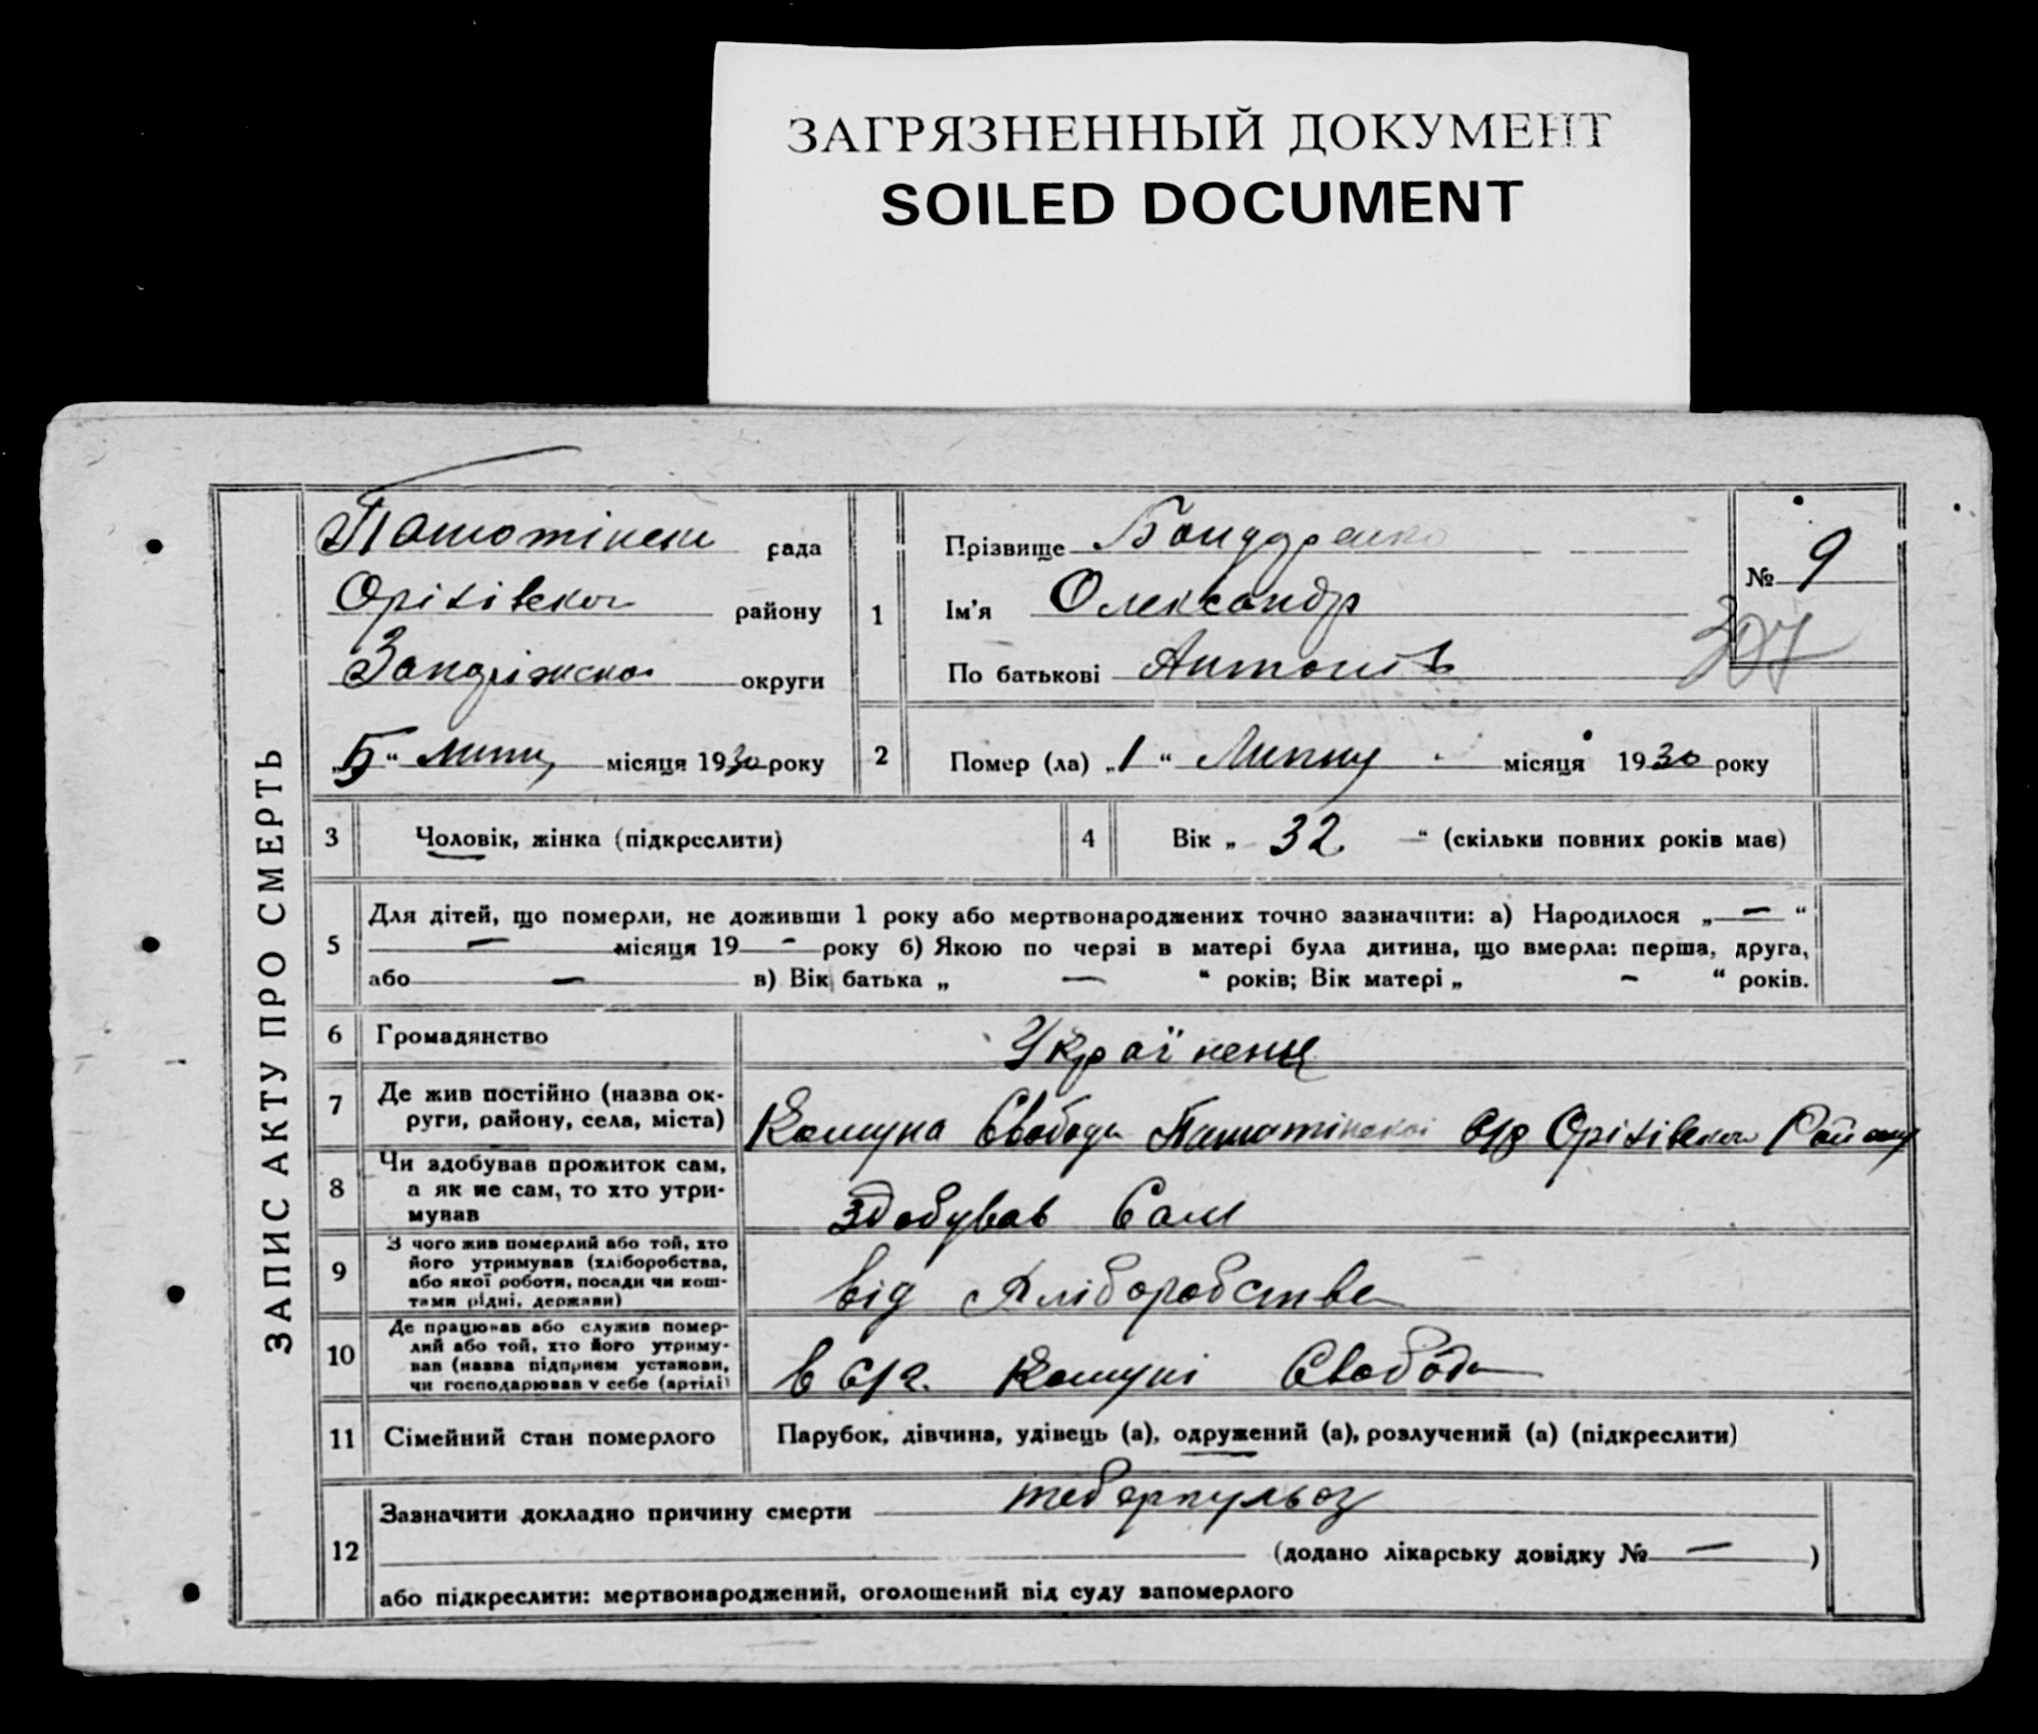 ЗАГРЯЗНЕННЫЙ ДОКУМЕНТ
SOILED DOCUMENT
ЗАПИС АКТУ ПРО СМЕРТЬ
рада
Оріхівског району
округи
„5“ липня місяця 1930 року
1
Прізвище Бондаренко
Ім'я Олександр
По батькові Антонів
№ 9
307
2 Помер (ла) „1“ Липня місяця 1930 року
3 Чоловік, жінка (підкреслити)
4 Вік „32“ (скільки повних років має)
5 Для дітей, що померли, не доживши 1 року або мертвонароджених точно зазначити: а) Народилося „—“
— місяця 19 - року б) Якою по черзі в матері була дитина, що вмерла: перша, друга,
або — в) Вік батька „ — “ років; Вік матері „ - “ років.
6 Громадянство Українець
7 Де жив постійно (назва ок-
руги, району, села, міста) Комуна Свобода с/р Оріхівског Району
8 Чи здобував прожиток сам,
а як не сам, то хто утри-
мував Здобував Сам
9 З чого жив померлий або той, хто
його утримував (хліборобства,
або якої роботи, посади чи кош-
тами рідні, держави) від Хліборобства
10 Де працював або служив помер-
лий або той, хто його утриму-
вав (назва підприєм установи,
чи господарював у себе (артілі) в с/г. Комуні Свобода
11 Сімейний стан померлого Парубок, дівчина, удівець (а), одружений (а), розлучений (а) (підкреслити)
12 Зазначити докладно причину смерти теберпульоз
(додано лікарську довідку № — )
або підкреслити: мертвонароджений, оголошений від суду запомерлого